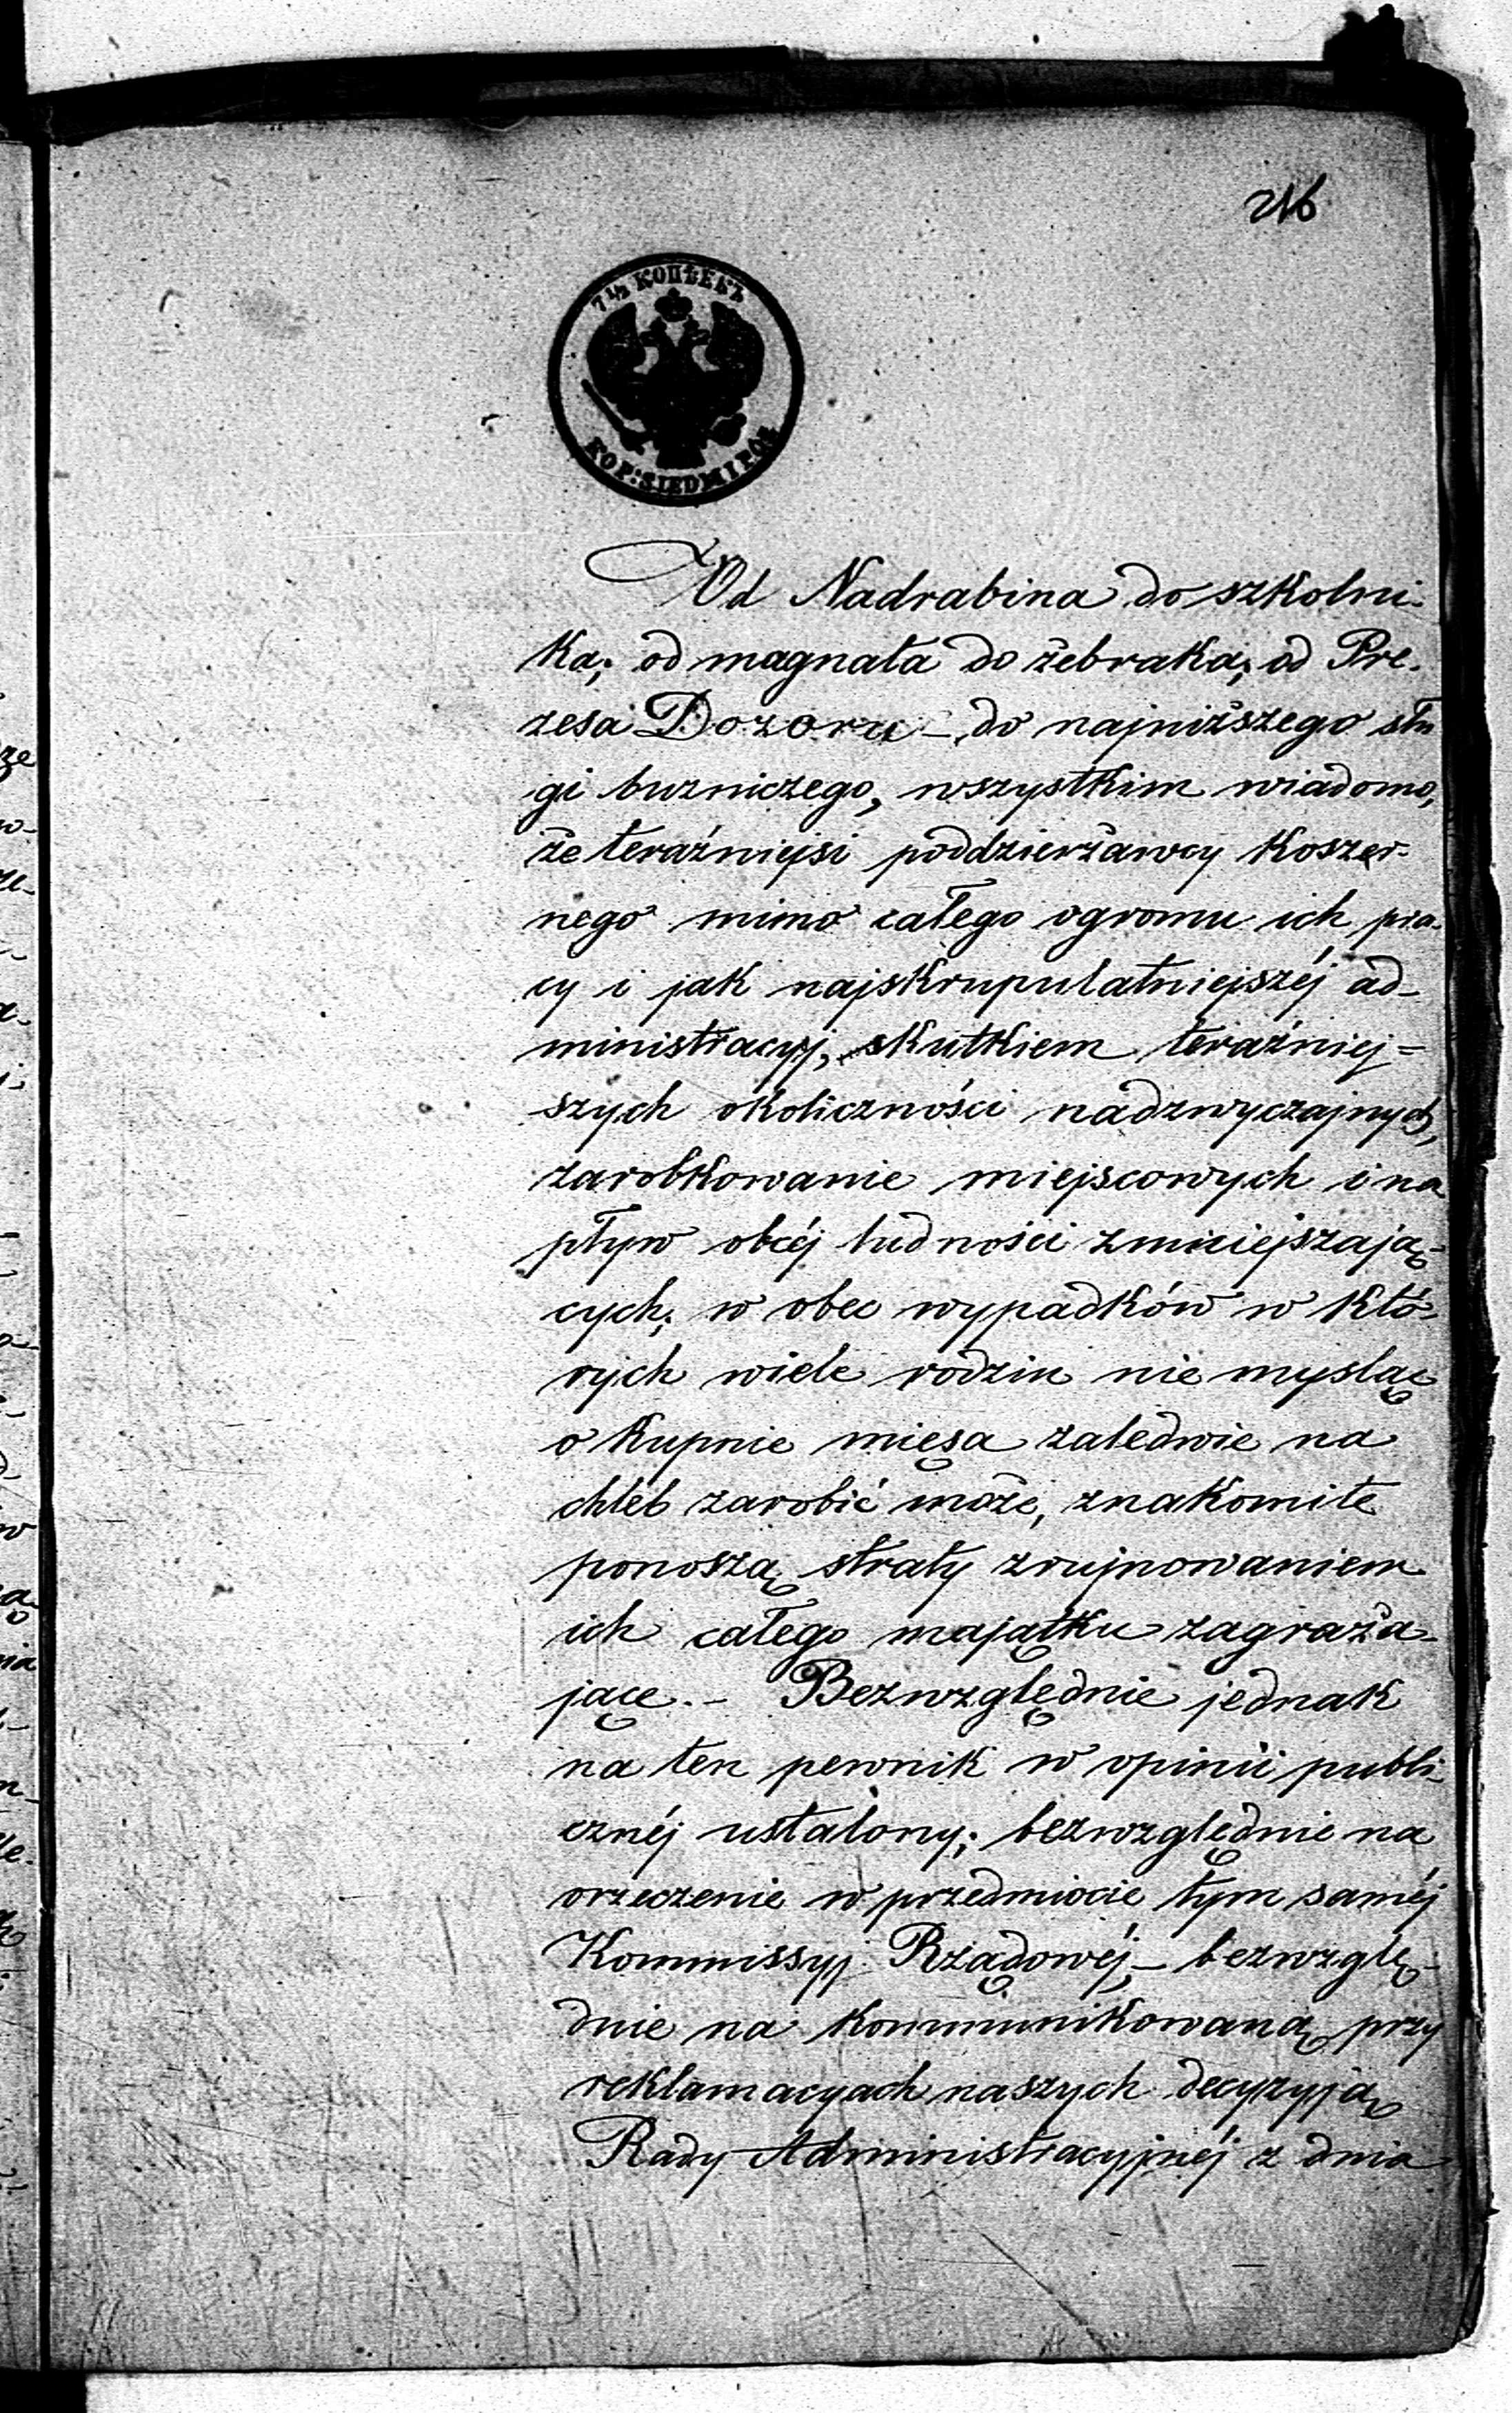 216
7 1/2 КОПѢЕКЪ
KOP: SIEDM I POŁ
Od Nadrabina do szkolni-
ka; od magnata do żebraka; od Pre-
zesa Dozoru – do najniższego słu
gi buzniczego, wszystkim wiadomo,
że teraźniejsi poddzierżawcy koszer-
nego mimo całego ogromu ich pra-
cy i jak najskrupulatniejszéj ad-
ministracyj, skutkiem teraźniej=
szych okoliczności nadzwyczajnych,
zarobkowanie miejscowych i na
pływ obcéj ludności zmniejszają-
cych; w obec wypadków w któ-
rych wiele rodzin nie myśląc
o kupnie mięsa zaledwie na
chleb zarobić może, znakomite
ponoszą straty zrujnowaniem
ich całego majątku zagraża-
jące. – Bezwzględnie jednak
na ten pewnik w opinii publi-
cznéj ustalony; bezwzględnie na
orzeczenie w przedmiocie tym saméj
Kommissyj Rządowéj – bezwzglę-
dnie na kommunikowaną przy
reklamacyach naszych decyzyją
Rady Administracyjnéj z dnia